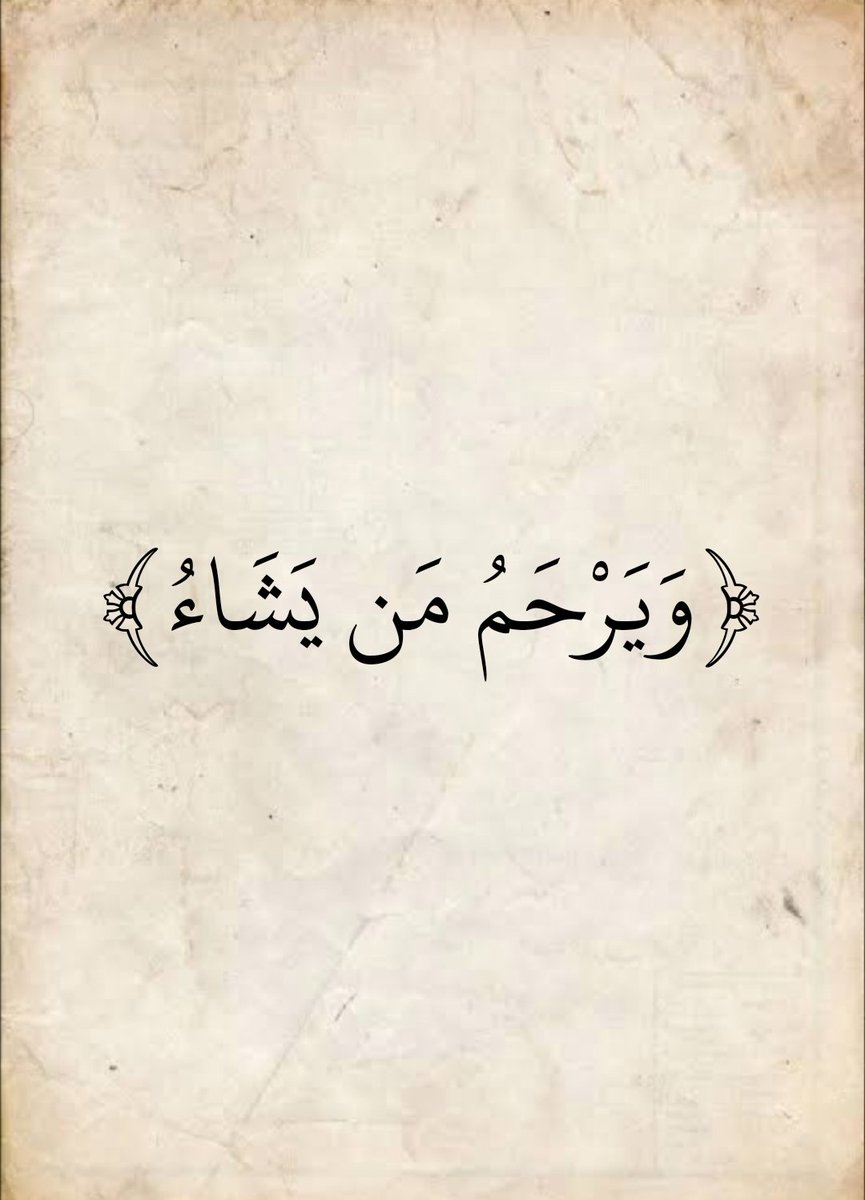 ﴿وَيَرْحَمُ مَن يَشَاءُ﴾